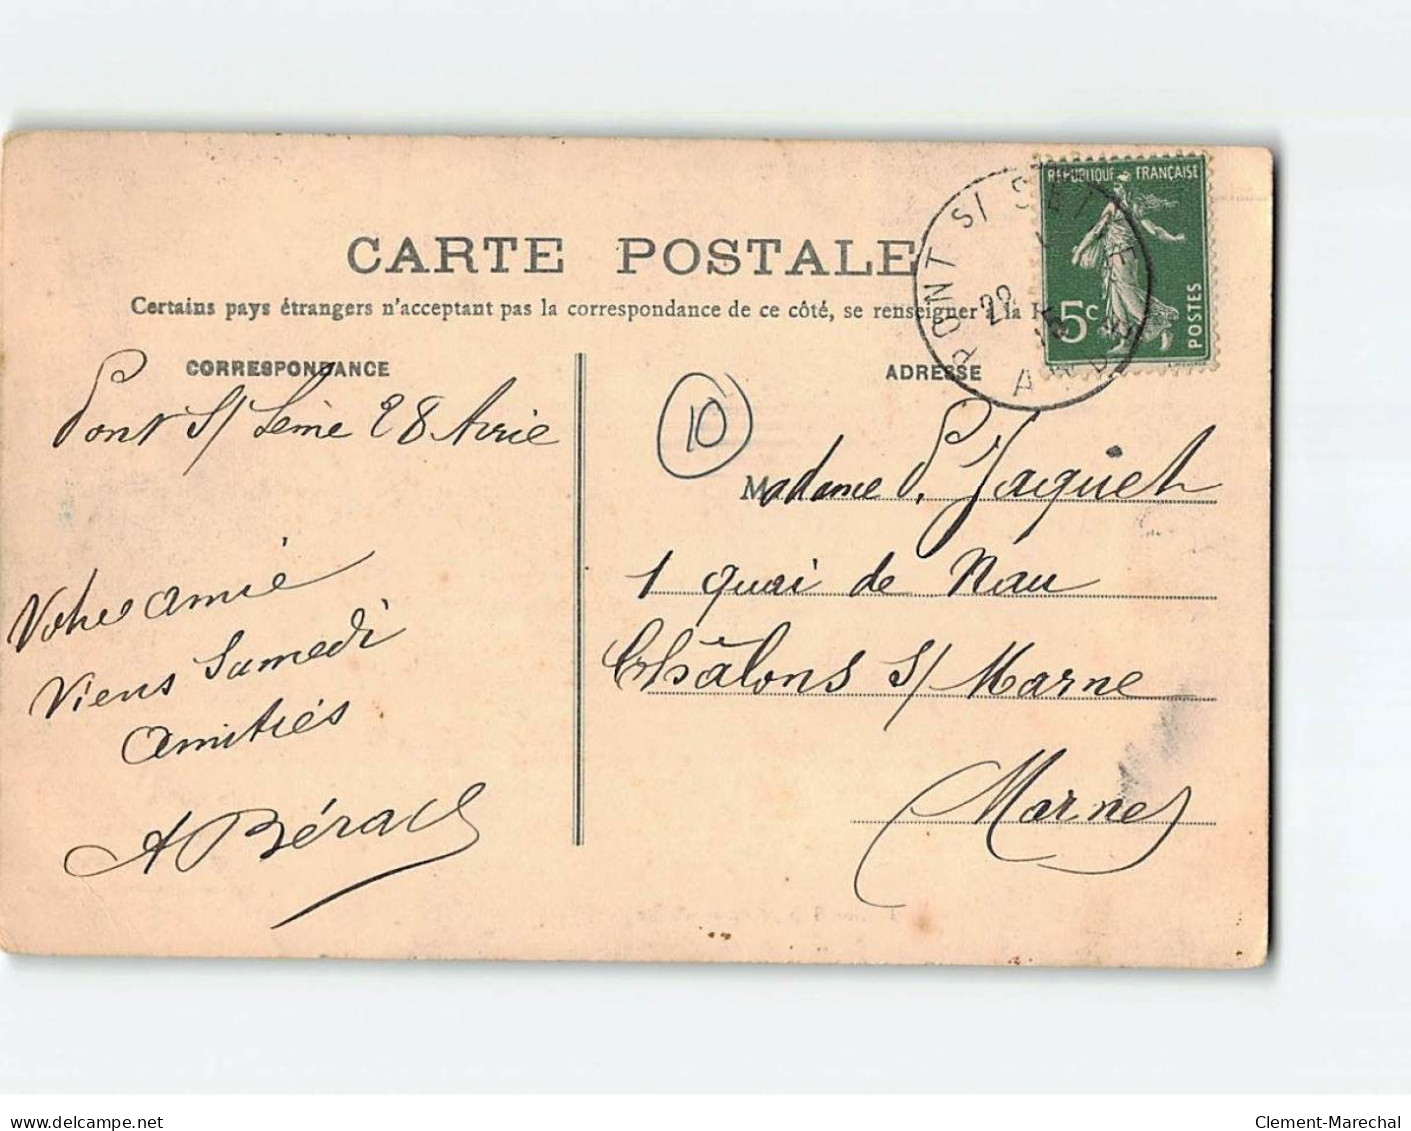 CARTE POSTALE
Certains pays étrangers n'acceptant pas la correspondance de ce côté, se renseigner à la
CORRESPONDANCE
ADRESSE
REPUBLIQUE FRANÇAISE
POSTES
5c
PONT S/ SEINE
22
AUBE
10
Pont S/ Seine 28 Avril
Votre amie
Viens Samedi
Amitiés
A Bérach
Madame P. Jaquet
1 quai de Nau
Châlons s/ Marne
Marne
www.delcampe.net
Clement-Marechal